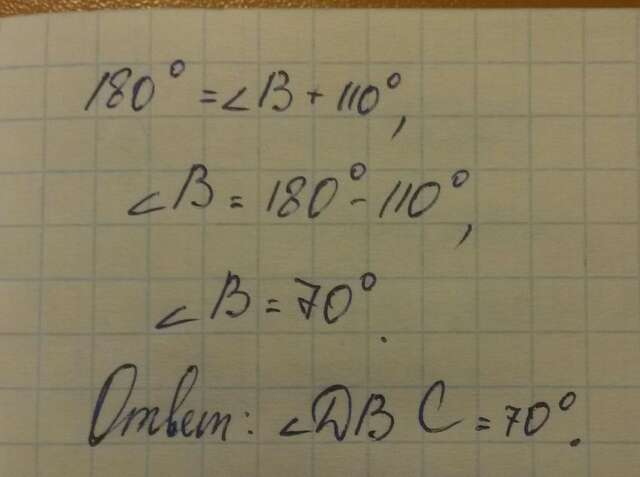 180° = ∠B + 110°,
∠B = 180° - 110°,
∠B = 70°.
Ответ: ∠DBC = 70°.